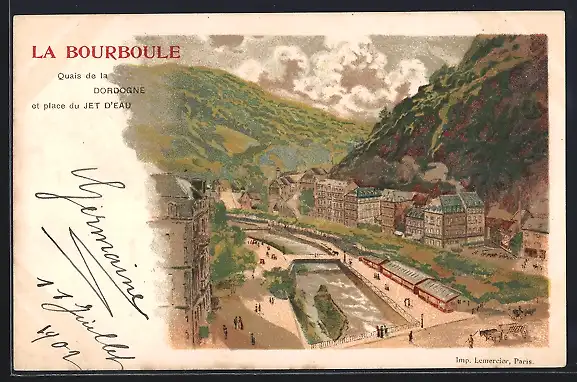 LA BOURBOULE
Quais de la
DORDOGNE
et place du JET D'EAU
Germaine
11 Juillet
1902
Imp. Lemercier, Paris.